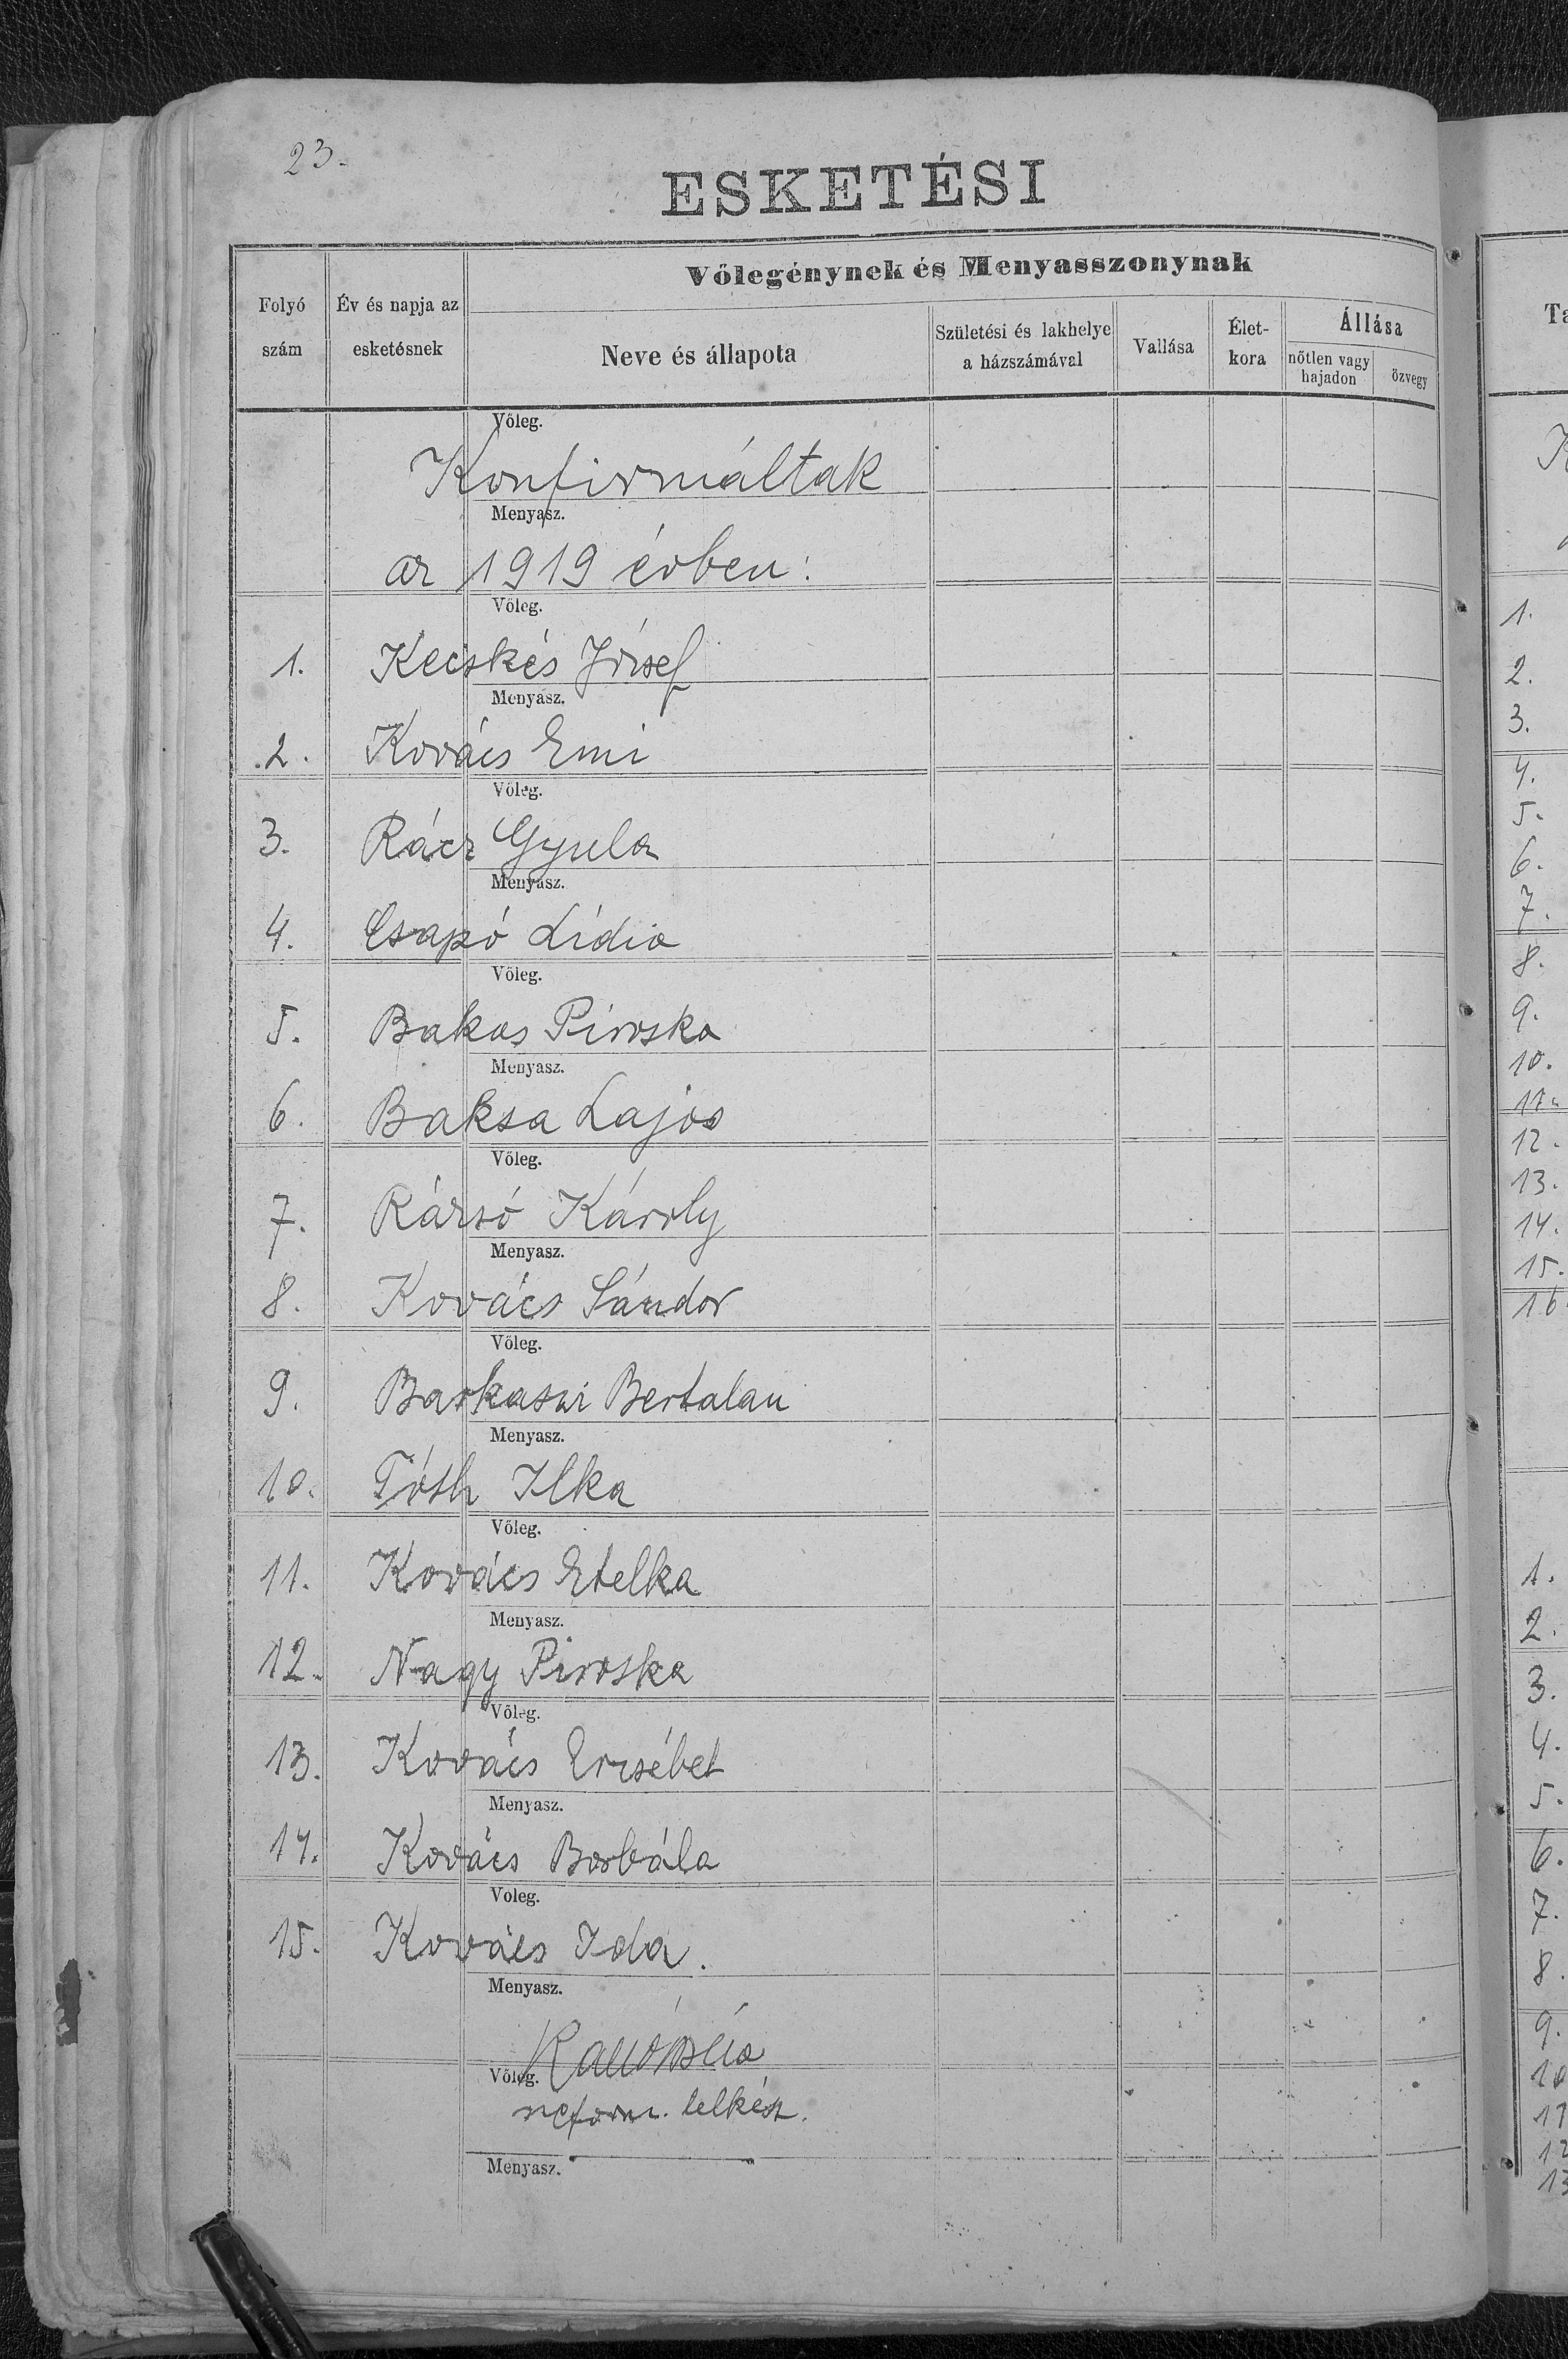 23.
ESKETÉSI
Folyó szám
Év és napja az esketésnek
Vőlegénynek és Menyasszonynak
Neve és állapota
Születési és lakhelye a házszámával
Vallása
Élet-kora
Állása
nőtlen vagy hajadon
özvegy
Vőleg.
Konfirmáltak
Menyasz.
az 1919 évben:
Vőleg.
1. Kecskés József
Menyasz.
2. Kovács Emi
Vőleg.
3. Rácz Gyula
Menyasz.
4. Csapó Lídia
Vőleg.
5. Bakos Piroska
Menyasz.
6. Baksa Lajos
Vőleg.
7. Rázsó Károly
Menyasz.
8. Kovács Sándor
Vőleg.
9. Barkaszi Bertalan
Menyasz.
10. Tóth Ilka
Vőleg.
11. Kovács Etelka
Menyasz.
12. Nagy Piroska
Vőleg.
13. Kovács Erzsébet
Menyasz.
14. Kovács Borbála
Voleg.
15. Kovács Ida.
Menyasz.
Vőleg.
reform. lelkész.
Menyasz.
1.
2.
3.
4.
5.
6.
7.
8.
9.
10.
11.
12.
13.
14.
15.
16
1.
2.
3.
4.
5.
6.
7.
8.
9.
10
11
12
13